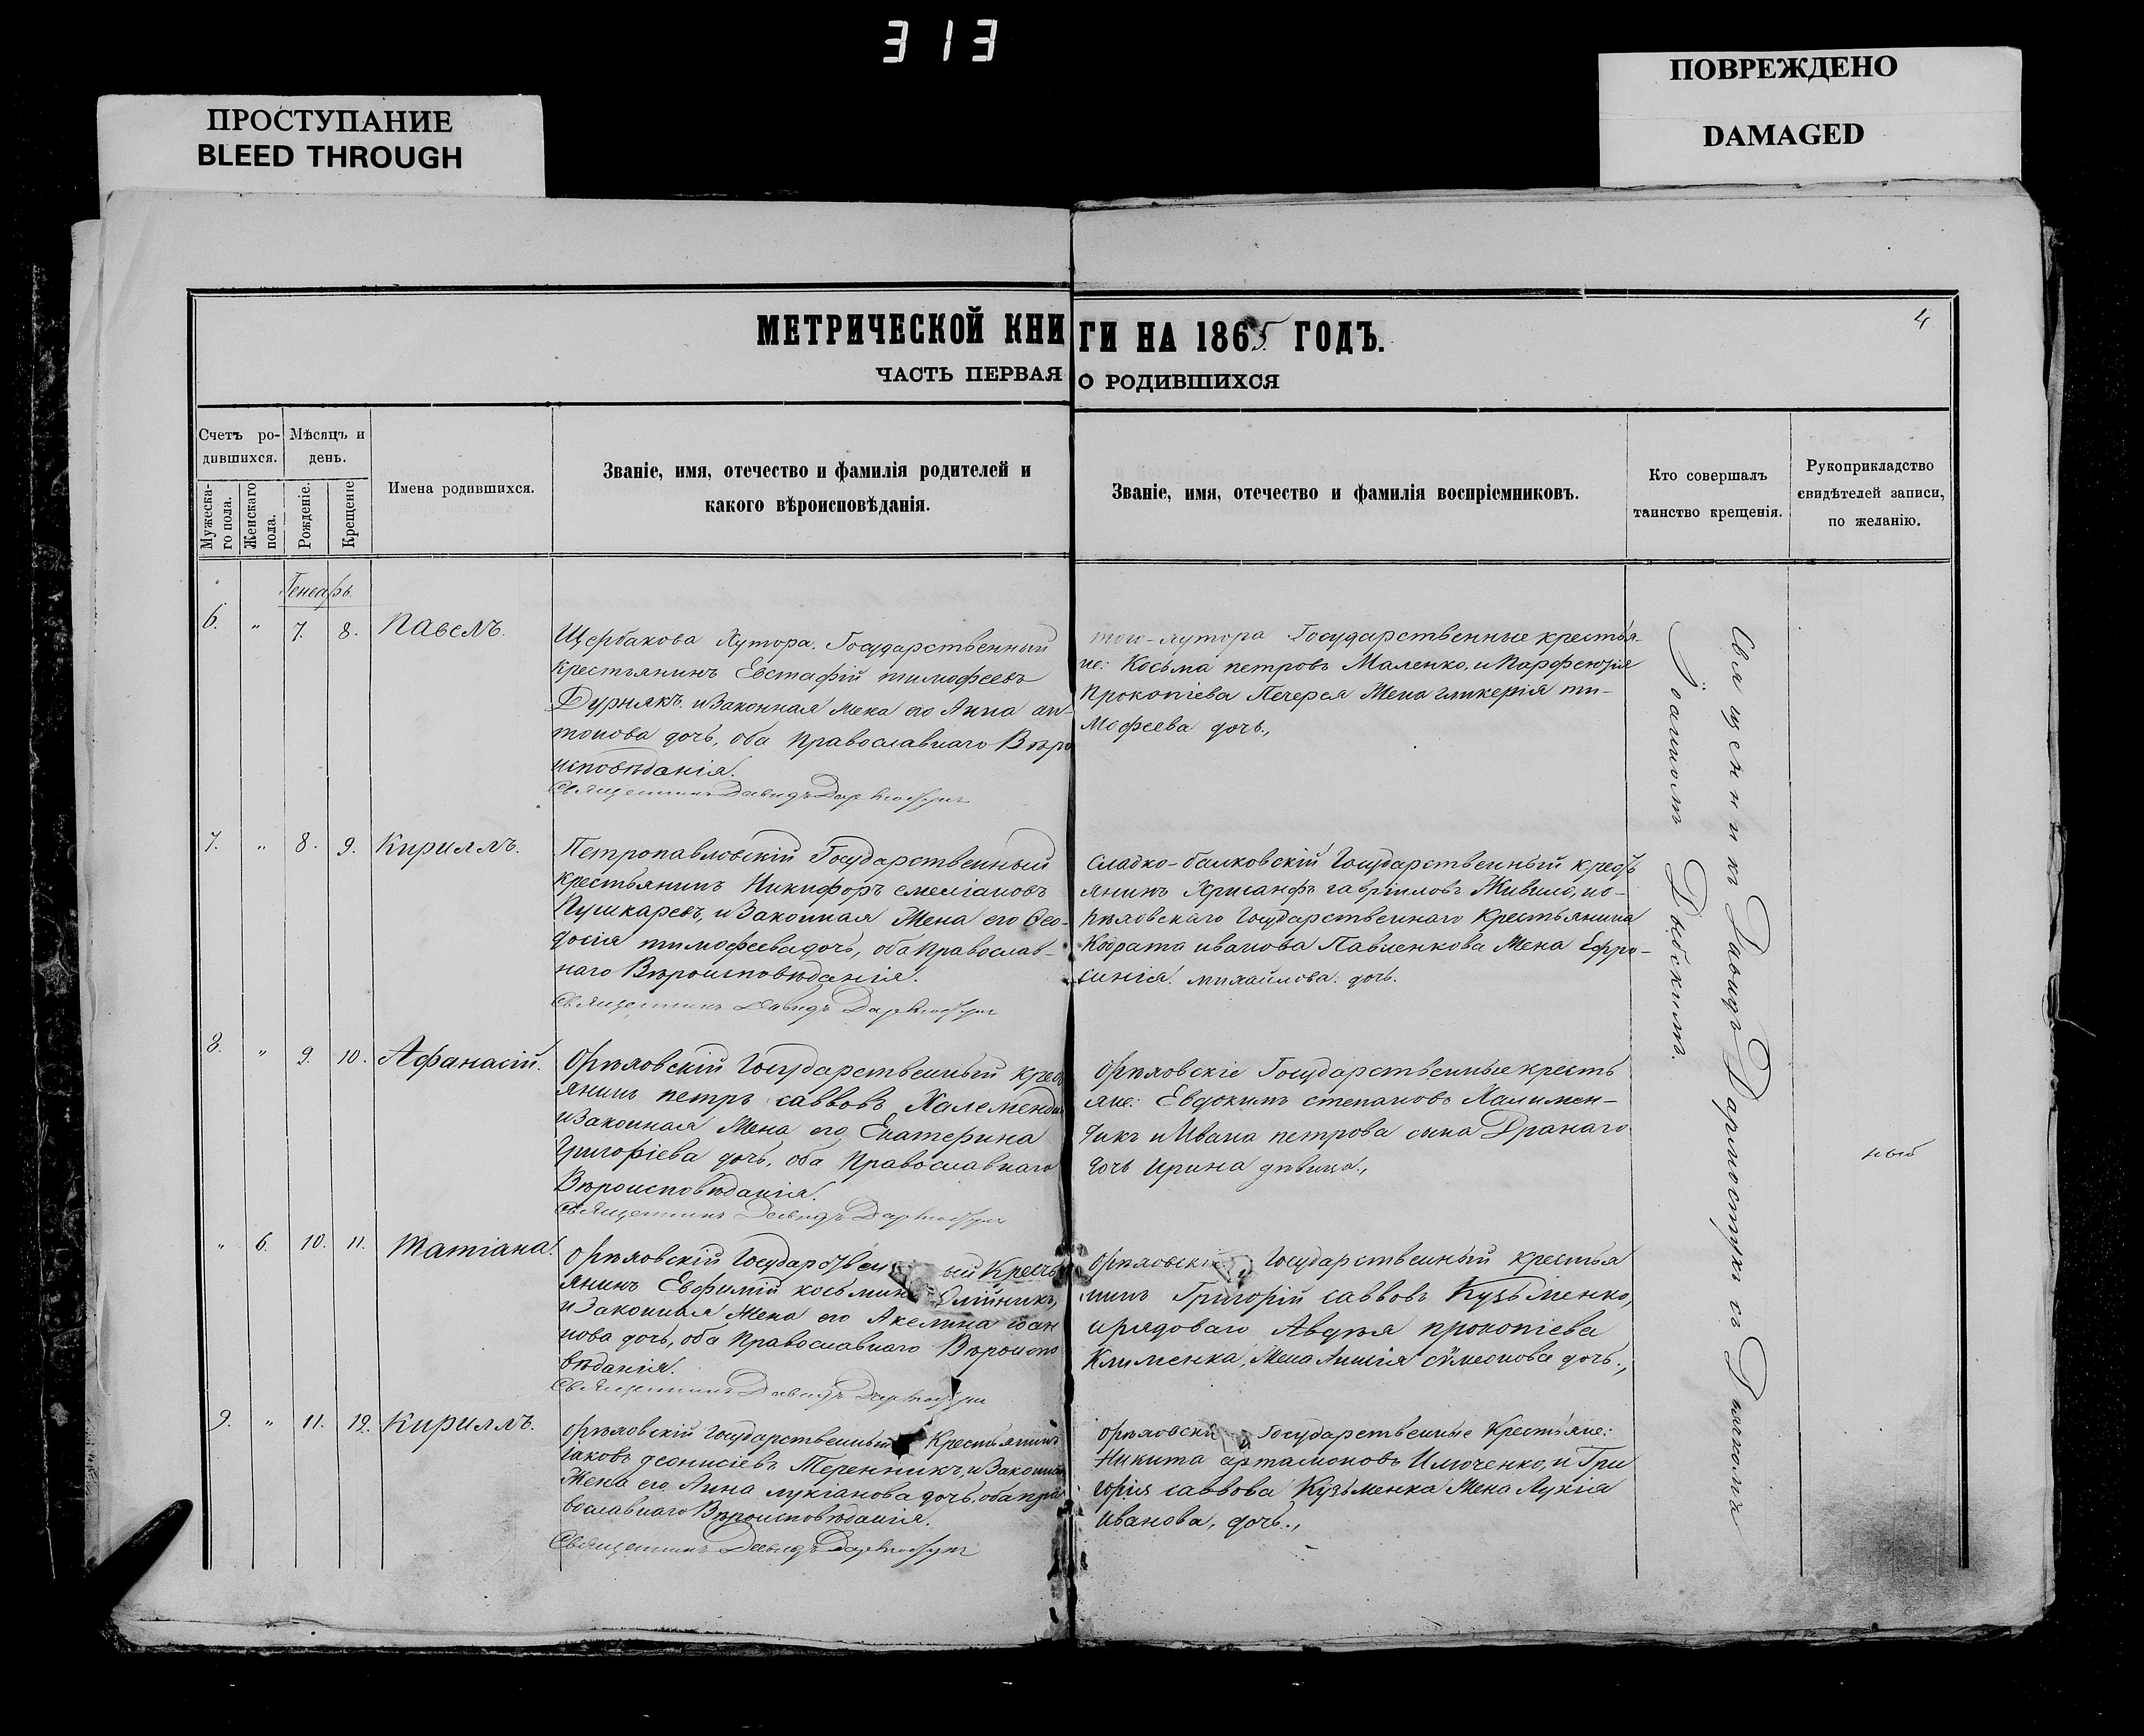 313
ПРОСТУПАНИЕ
BLEED THROUGH
ПОВРЕЖДЕНО
DAMAGED
4
МЕТРИЧЕСКОЙ КНИГИ НА 1865 ГОДЪ.
ЧАСТЬ ПЕРВАЯ О РОДИВШИХСЯ
Счетъ ро-
дившихся.
Мужеска-
го пола.
Женскаго
пола.
Мѣсяцъ и
день.
Рожденіе.
Крещеніе
Имена родившихся.
Званіе, имя, отечество и фамилія родителей и
какого вѣроисповѣданія.
Званіе, имя, отечество и фамилія воспріемниковъ.
Кто совершалъ
таинство крещенія.
Рукоприкладство
свидѣтелей записи,
по желанію.
Генварь.
6. " 7. 8. Павелъ.
Щербакова Хутора. Государственный
крестьянинъ Евстафій тимофеевъ
Дурнякъ. и Законная жена его Анна ан-
тонова дочь, оба Православнаго Вѣро
исповѣданія.
Священникъ Давидъ
того-хутора Государственные крестья-
не: Косьма петровъ Маленко, и Парфентія
Прокопіева Печерея Жена гликерія ти-
мофеева дочь.,
7. " 8. 9. Кириллъ.
Петропавловскій Государственный
крестьянинъ Никифоръ емеліановъ
Пушкаревъ, и Законная Жена его Ѳео-
досія тимофеева дочь, оба Православ-
наго Вѣроисповѣданія.
Священникъ Давидъ
сладко-балковскій Государственный крест
янинъ Хрисанфъ гавріиловъ Живило, ио-
рѣховскаго Государственнаго Крестьянина
Кодрата иванова Павленкова Жена Ефро-
синія. михайлова. дочь.
8. " 9. 10. Афанасій.
Орѣховскій Государственный крест
янинъ петръ саввовъ
и Законная Жена его Екатерина
Григоріева дочь, оба Православнаго
Вѣроисповѣданія.
Священникъ Давидъ
Орѣховскіе Государственные кресть
яне: Евдокимъ степановъ Халимен-
дикъ и Ивана петрова сына Дранаго
дочь Ирина дѣвица.,
" 6. 10. 11. Татіана.
Орѣховскій Государствен ый Кресть
янинъ Евфимій косьминъ Олійникъ,
и Законная Жена его Акелина іоан
нова дочь, оба Православнаго Вѣроиспо
вѣданія.
Священникъ Давидъ
Орѣховскій Государственный крестья
нинъ Григорій саввовъ Кузьменко,
и рядоваго Авдѣя прокопіева
Клименка, Жена Анисія сѵмеонова дочь.,
9. " 11. 12. Кириллъ.
орѣховскій Государственный Крестьянинъ
Іаковъ деонисіевъ Теренникъ, и Законная
Жена его Анна лукіанова дочь, оба пра
вославнаго Вѣроисповѣданія.
Священникъ Давидъ
орѣховскі Государственные Крестьяне:
Никита артамоновъ Илюченко, и Гри
горія саввова Кузьменка Жена Лукія
Иванова, дочь.,
Священникъ Давидъ Дармостукъ съ Дьякомъ